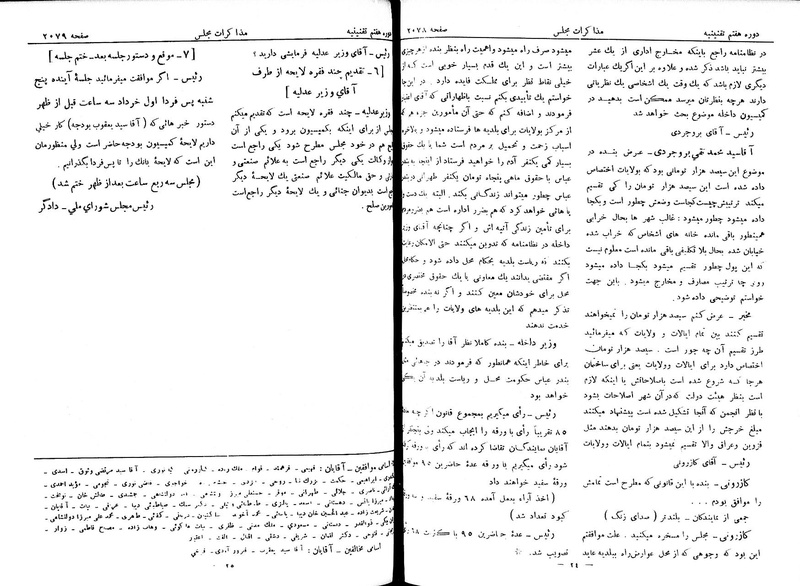 دوره هفتم تقنینیه
مذاکرات مجلس
صفحه ۲۰۷۸
در نظامنامه راجع باینکه مخارج اداری از یك عشر
بیشتر نباید باشد ذکر شده و علاوه بر این اگر یك عبارات
دیگری لازم باشد که یك وقت یك اشخاصی یك نظریاتی
دارند هرچه بنظرتان میرسد ممکن است بدهید در
کمیسیون داخله موضوع بحث خواهد شد
رئیس ـ آقای بروجردی
آقا سید محمد تقی بروجردی ـ عرض بنده در
موضوع این سیصد هزار تومانی بود که بولایات اختصاص
داده شده است این سیصد هزار تومان را کی تقسیم
میکند ترتیبش چیست کجاست وضعش چطور است و بکجا
داده میشود چطور میشود : غالب شهر ها بحال خرابی
همینطور باقی مانده خانه های اشخاص که خراب شده
خیابان شده بحال بلا تکلیفی باقی مانده است معلوم نیست
که این پول چطور تقسیم میشود بکجا داده میشود
روی چه ترتیب مصارف و مخارج میشود . باین جهت
خواستم توضیحی داده شود .
مخبر ـ عرض کنم سیصد هزار تومان را نمیخواهند
تقسیم کنند بین تمام ایالات و ولایات که میفرمائید
طرز تقسیم آن چه جور است . سیصد هزار تومان
اختصاص دارد برای ایالات و ولایات یعنی برای ساختمان
هرجا که شروع شده است باصلاحاتش یا اینکه لازم
است بنظر هیئت دولت که در آن شهر اصلاحات بشود
با نظر انجمن که آنجا تشکیل شده است پیشنهاد میکنند
مبلغ خرجش را از این سیصد هزار تومان بدهند مثل
قزوین و عراق والا تقسیم نمیشود بتمام ایالات وولایات
رئیس ـ آقای کازرونی
کازرونی ـ بنده با این قانونی که مطرح است تمامش
را موافق بودم ...
جمعی از نمایندگان ـ بلندتر ( صدای زنگ )
کازرونی ـ مجلس را مسخره میکنید . علت موافقتم
این بود که وجوهی که از محل عوارض راه ببلدیه عاید
ـ ۲٤ ـ
میشود صرف راه میشود و اهمیت راه بنظر بنده از هرچیزی
بیشتر است و این یك قدم بسیار خوبی است که از
خیلی نقاط نظر برای مملکت فایده دارد . در اینجا
خواستم یك تأییدی بکنم نسبت باظهاراتی که آقای
فرمودند و اضافه کنم که حتی آن مأمورین جزء هم که
از مرکز بولایات برای بلدیه ها فرستاده میشود و بالاخره
اسباب زحمت و تحمیل بر مردم است شما با یك حقوق
بسیار کمی یکنفر آدم را خواهید فرستاد از اینجا به بندر
عباس با حقوق ماهی پنجاه تومان یکنفر طهرانی در بندر
عباس چطور میتواند زندگانی بکند . البته یك دست و
پا هائی خواهد کرد که هم بضرر اداره است هم بضرر مردم
برای تأمین زندگی آتیه اش و اگر چنانچه آقای وزیر
داخله در نظامنامه که تدوین میکنند حتی الامکان رعایت
بکنند که ریاست بلدیه بحکام محل داده شود و حکام محل
اگر مقتضی بدانند یك معاونی با یك حقوق مختصری در
محل برای خودشان معین کنند و اگر نه بنده مخصوصا
تذکر میدهم که این بلدیه های ولایات را هر چه بیشتر
خدمت ندهند
وزیر داخله ـ بنده کاملا نظر آقا را تصدیق میکنم
برای خاطر اینکه همانطور که فرمودند در جاهائی مثل
بندر عباس حکومت محل و ریاست بلدیه آن یکی
خواهد بود
رئیس ـ رأی میگیریم بمجموع قانون اگر چه
۸۵ تقریباً رأی با ورقه را ایجاب میکند ولی پنجنفر از
آقایان نمایندگان تقاضا کرده اند که رأی با ورقه گرفته
شود رأی میگیریم با ورقه عدۀ حاضرین ۹۵ موافقین
ورقۀ سفید خواهند داد
( اخذ آراء بعمل آمده ٦۸ ورقۀ سفید و سه
کبود تعداد شد )
رئیس ـ عدۀ حاضرین ۹۵ با اکثریت ٦۸ رأی
تصویب شد .
دوره هفتم تقنینیه
مذاکرات مجلس
صفحه ۲۰۷۹
رئیس ـ آقای وزیر عدلیه فرمایشی دارید ؟
[ ٦ ـ تقدیم چند فقره لایحه از طرف
آقای وزیر عدلیه ]
وزیر عدلیه ـ چند فقره لایحه است که تقدیم میکنم
از برای اینکه بکمیسیون برود و یکی از آن
هم در خود مجلس مطرح شود یکی راجع است
بوکالت یکی دیگر راجع است به علائم صنعتی و
و حق مالکیت علائم صنعتی یك لایحۀ دیگر
است بدیوان جنائی و یك لایحۀ دیگر راجع است
بامورین صلح .
[ ۷ ـ موقع و دستور جلسه بعد ـ ختم جلسه ]
رئیس ـ اگر موافقت میفرمائید جلسۀ آینده پنج
شنبه پس فردا اول خرداد سه ساعت قبل از ظهر
دستور خبر هائی که ( آقا سید یعقوب بودجه ) کار خیلی
داریم لایحۀ کمیسیون بودجه حاضر است ولی منظورمان
این است که لایحۀ بانك را تا پس فردا بگذرانیم .
( مجلس سه ربع ساعت بعد از ظهر ختم شد )
رئیس مجلس شورای ملی ـ دادگر
اسامی موافقین ـ آقایان :
اسامی مخالفین ـ آقایان : آقا سید یعقوب ـ فیروز آبادی ـ فرخی
۲۵